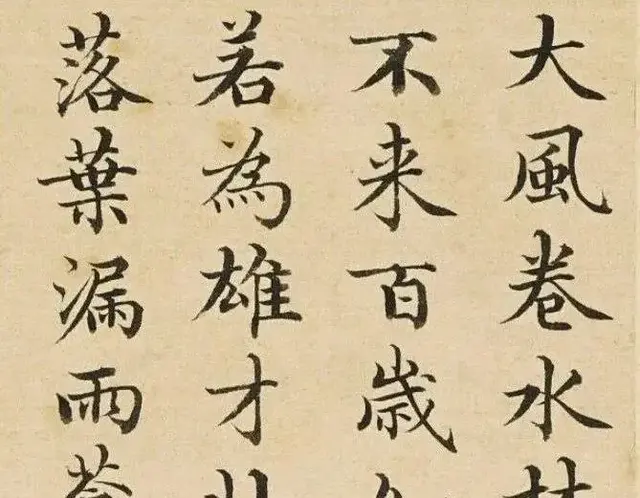 大風卷水
不来百歲
若為雄才
落葉漏雨